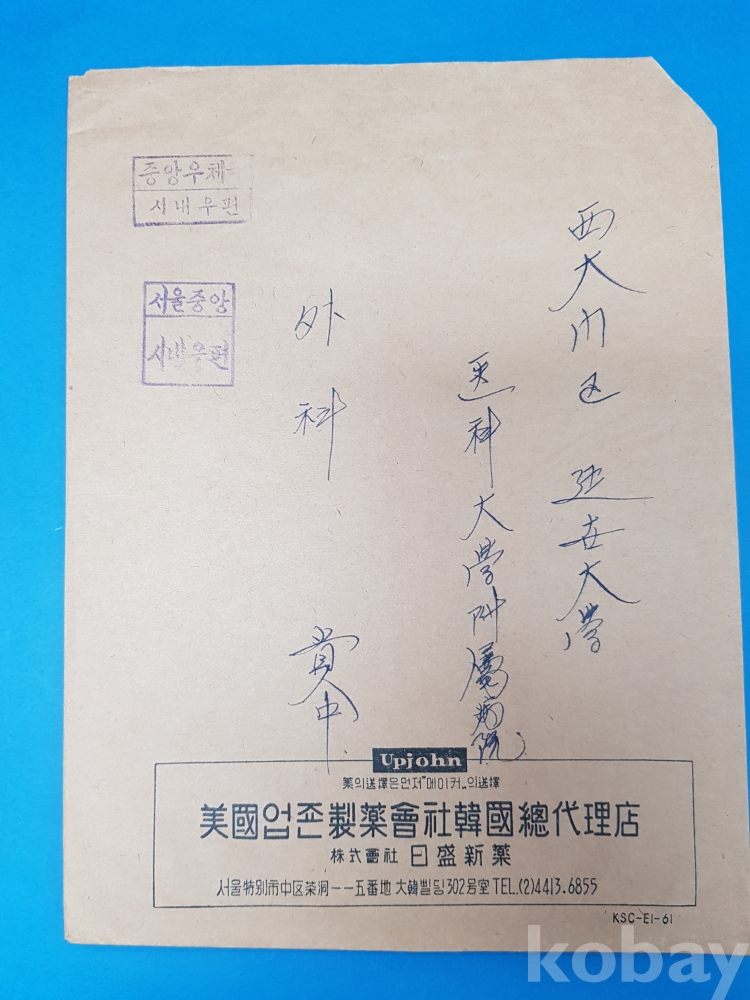 중앙우체
시내우편
서울중앙
시내우편
西大门区 延世大學
医科大学附屬病院
外科
貴中
Upjohn
薬의選擇은먼저"메이커"의選擇
美國업죤製薬會社韓國總代理店
株式會社 日盛新薬
서울特別市中区茶洞一一五番地 大韓빌딩302号室 TEL.(2)4413.6855
KSC-E1-61
kobay